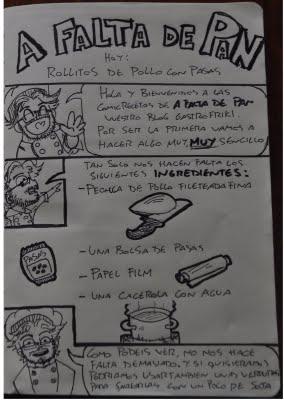 A FALTA DE PAN
HOY:
ROLLITOS DE POLLO CON PASAS
HOLA Y BIENVENIDOS A LAS
COMIC RECETAS DE A FALTA DE PAN
VUESTRO BLOG GASTROFRIKI.
POR SER LA PRIMERA VAMOS A
HACER ALGO MUY, MUY SENCILLO
TAN SOLO NOS HACEN FALTA LOS
SIGUIENTES INGREDIENTES:
-PECHUGA DE POLLO FILETEADA FINA
PASAS
-UNA BOLSA DE PASAS
-PAPEL FILM
-UNA CACEROLA CON AGUA
COMO PODEIS VER, NO NOS HACE
FALTA DEMASIADO, Y SI QUISIERAMOS
PODRIAMOS USAR TAMBIEN UNAS VERDURAS
PARA SALTEARLAS CON UN POCO DE SOJA